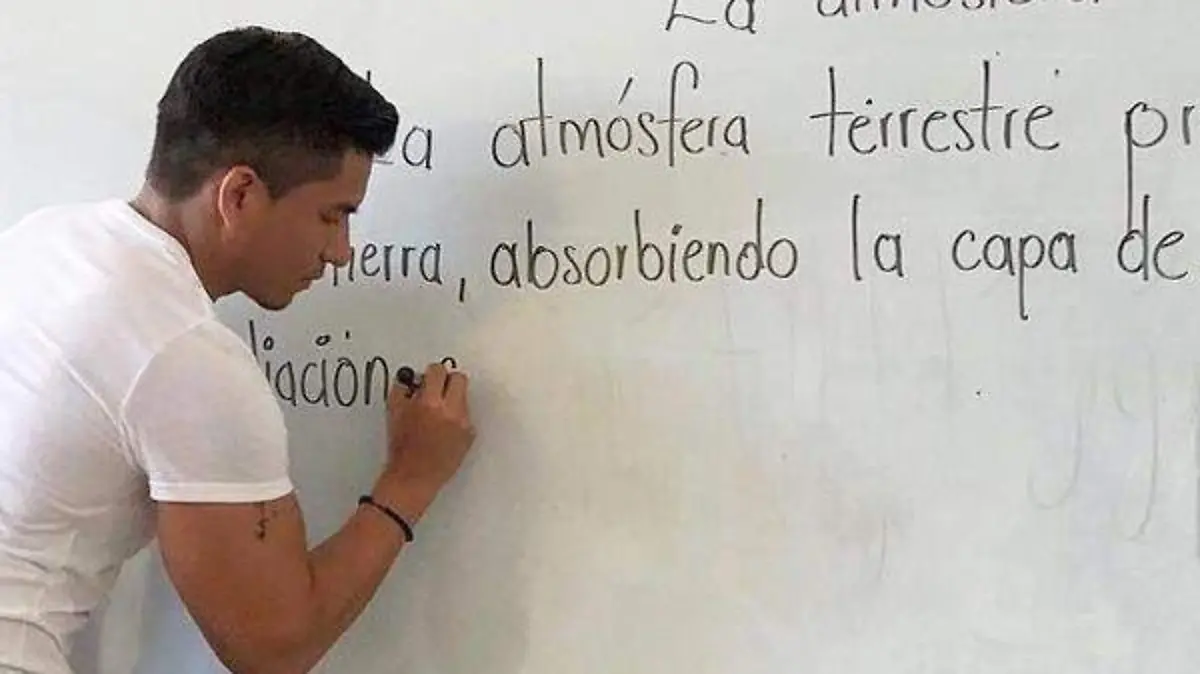 La atmósfera
La atmósfera terrestre pr
ierra, absorbiendo la capa de
iación